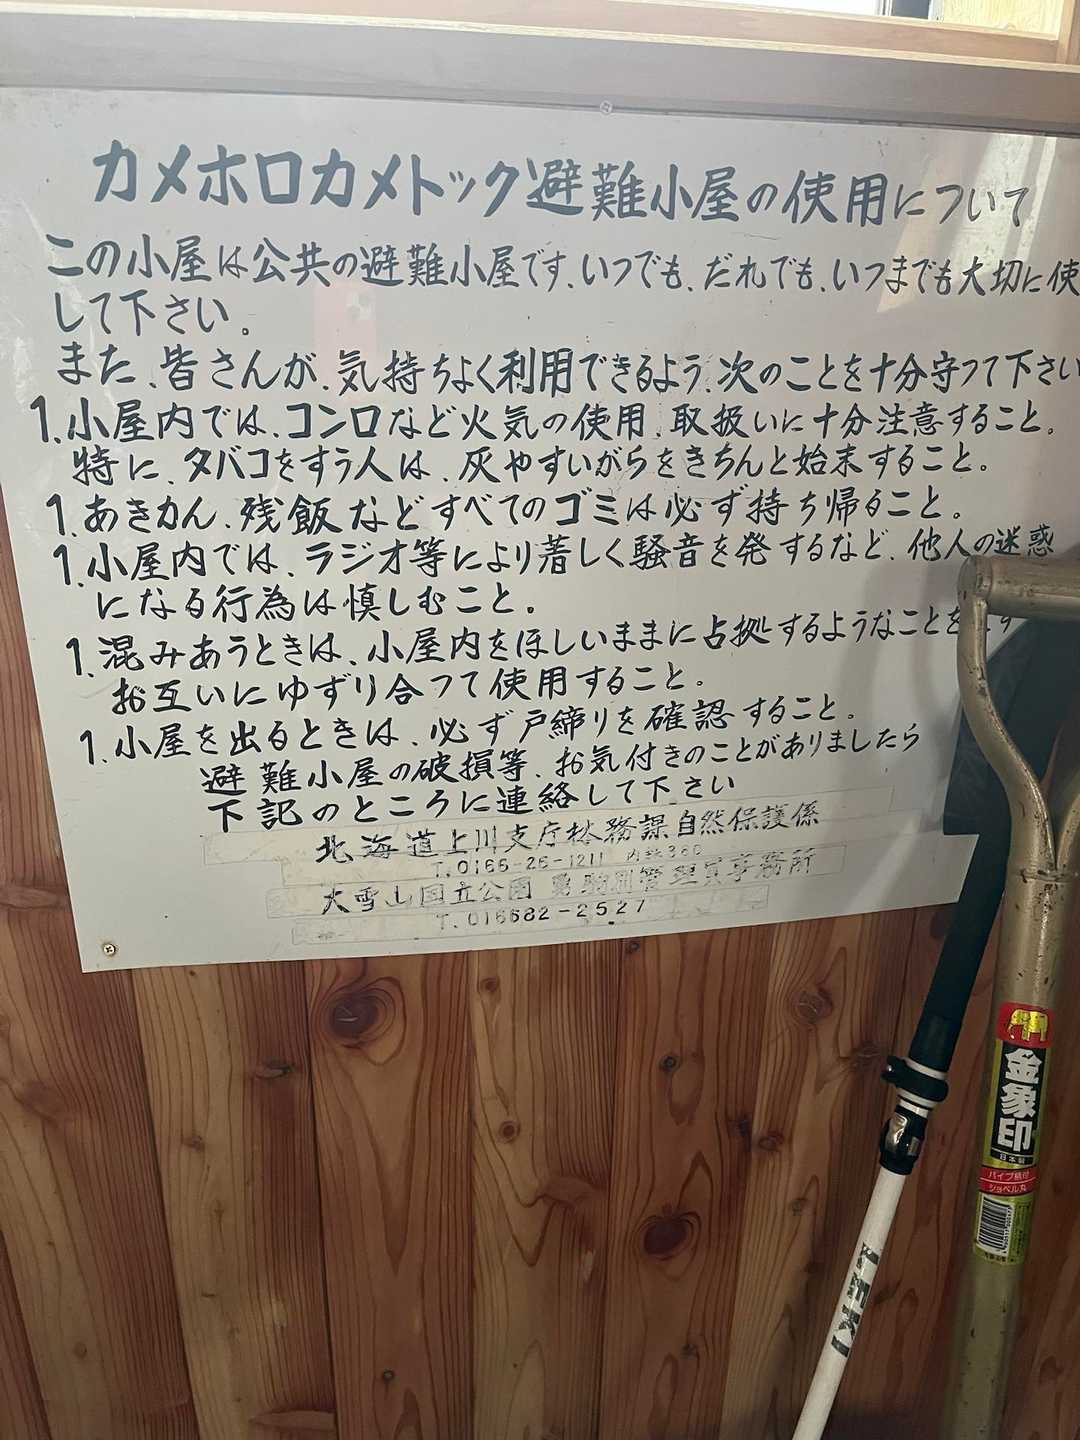 カメホロカメトック避難小屋の使用について
この小屋は公共の避難小屋です、いつでも、だれでも、いつまでも大切に使
して下さい。
また、皆さんが、気持ちよく利用できるよう、次のことを十分守って下さい
1、小屋内では、コンロなど火気の使用、取扱いに十分注意すること。
特に、タバコをすう人は、灰やすいがらをきちんと始末すること。
1、あきかん、残飯などすべてのゴミは必ず持ち帰ること。
1、小屋内では、ラジオ等により著しく騒音を発するなど、他人の迷惑
になる行為は慎しむこと。
1、混みあうときは、小屋内をほしいままに占拠するようなことを
お互いにゆずり合って使用すること。
1、小屋を出るときは、必ず戸締りを確認すること。
避難小屋の破損等、お気付きのことがありましたら
下記のところに連絡して下さい
北海道上川支庁林務課自然保護係
T.0166-26-1211 内線360
大雪山国立公園 勇駒別管理員事務所
T.016682-2527
金象印
日本製
パイプ柄付
ショベル丸
LEKI